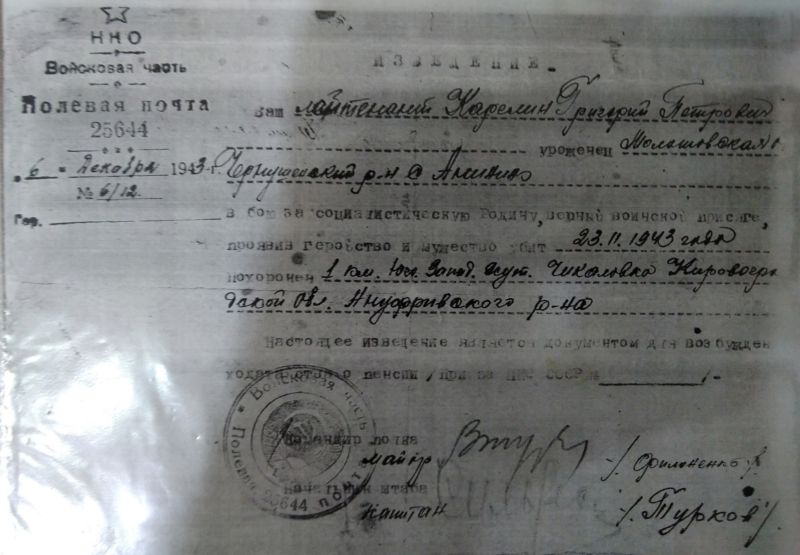 ННО
Войсковая часть
Полевая почта
25644
"6" Декабря 1943 г.
№ 6/12
Гор.
ИЗВЕЩЕНИЕ.
Ваш лайтенант Карелин Григорий Петрович
уроженец Молотовская о
Чернушенский р-н с Ананино
в бою за социалистическую Родину, верный воинской присяге,
проявив геройство и мужество убит 23.11.1943 года
похоронен 1 км. Юго. Запад. хут. Чкаловка Кировогра
дской Обл. Ануфривского р-на
Настоящее извещение является документом для возбужден
ходатайства о пенсии /приказ НКО СССР №            /-
Командир полка
майор -/. Филоненко /.
Начальник штаба
капитан -/. Турков /.
Войсковая часть
Полевая почта
25644